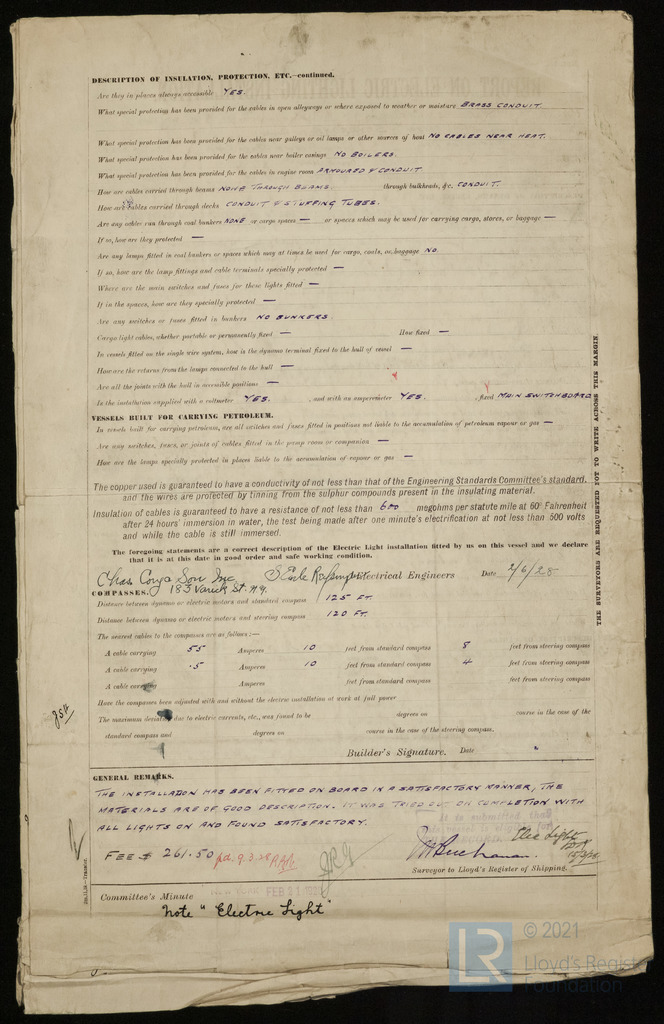 DESCRIPTION OF INSULATION, PROTECTION, ETC.—continued.
Are they in places always accessible YES.
What special protection has been provided for the cables in open alleyways or where exposed to weather or moisture BRASS CONDUIT.
What special protection has been provided for the cables near galleys or oil lamps or other sources of heat NO CABLES NEAR HEAT.
What special protection has been provided for the cables near boiler casings NO BOILERS.
What special protection has been provided for the cables in engine room ARMOURED & CONDUIT.
How are cables carried through beams NONE THROUGH BEAMS. through bulkheads, &c. CONDUIT.
How are cables carried through decks CONDUIT & STUFFING TUBES.
Are any cables run through coal bunkers NONE or cargo spaces — or spaces which may be used for carrying cargo, stores, or baggage —
If so, how are they protected —
Are any lamps fitted in coal bunkers or spaces which may at times be used for cargo, coals, or baggage NO.
If so, how are the lamp fittings and cable terminals specially protected —
Where are the main switches and fuses for these lights fitted —
If in the spaces, how are they specially protected —
Are any switches or fuses fitted in bunkers NO BUNKERS.
Cargo light cables, whether portable or permanently fixed — How fixed —
In vessels fitted on the single wire system, how is the dynamo terminal fixed to the hull of vessel —
How are the returns from the lamps connected to the hull —
Are all the joints with the hull in accessible positions —
Is the installation supplied with a voltmeter YES. , and with an amperemeter YES. , fixed MAIN SWITCHBOARD
VESSELS BUILT FOR CARRYING PETROLEUM.
In vessels built for carrying petroleum, are all switches and fuses fitted in positions not liable to the accumulation of petroleum vapour or gas —
Are any switches, fuses, or joints of cables fitted in the pump room or companion —
How are the lamps specially protected in places liable to the accumulation of vapour or gas —
The copper used is guaranteed to have a conductivity of not less than that of the Engineering Standards Committee's standard,
and the wires are protected by tinning from the sulphur compounds present in the insulating material.
Insulation of cables is guaranteed to have a resistance of not less than 600 megohms per statute mile at 60° Fahrenheit
after 24 hours' immersion in water, the test being made after one minute's electrification at not less than 500 volts
and while the cable is still immersed.
The foregoing statements are a correct description of the Electric Light installation fitted by us on this vessel and we declare
that it is at this date in good order and safe working condition.
Son Inc Electrical Engineers Date 2/6/28
183 Varick St. N.Y.
COMPASSES.
Distance between dynamo or electric motors and standard compass 125 FT.
Distance between dynamo or electric motors and steering compass 120 FT.
The nearest cables to the compasses are as follows:—
A cable carrying 55 Amperes 10 feet from standard compass 8 feet from steering compass
A cable carrying .5 Amperes 10 feet from standard compass 4 feet from steering compass
A cable carrying Amperes feet from standard compass feet from steering compass
Have the compasses been adjusted with and without the electric installation at work at full power
The maximum deviation due to electric currents, etc., was found to be degrees on course in the case of the
standard compass and degrees on course in the case of the steering compass.
Builder's Signature. Date
GENERAL REMARKS.
THE INSTALLATION HAS BEEN FITTED ON BOARD IN A SATISFACTORY MANNER, THE
MATERIALS ARE OF GOOD DESCRIPTION. IT WAS TRIED OUT ON COMPLETION WITH
ALL LIGHTS ON AND FOUND SATISFACTORY.
It is submitted that
FEE $ 261.50 pd. 9.3.28
Elec Light
Buchanan.
Surveyor to Lloyd's Register of Shipping.
NEW YORK FEB 21 1928
Committee's Minute
Note "Electric Light"
THE SURVEYORS ARE REQUESTED NOT TO WRITE ACROSS THIS MARGIN.
LR
© 2021
Lloyd's Register
Foundation